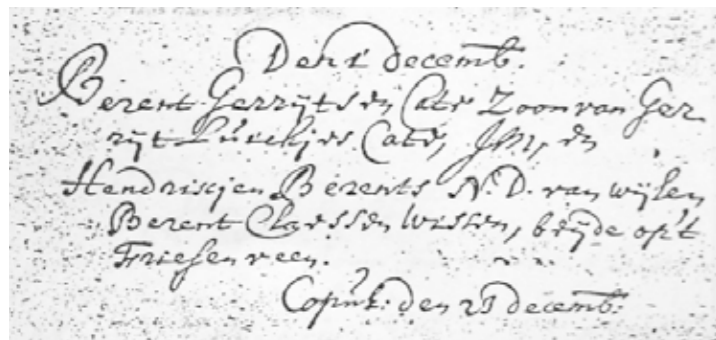 Den 1 decemb.
Berent Gerrijtsen Cate Zoon van Ger
rijt Luickjes Cate, JM, en
Hendrickjen Berents N.D. van wijlen
Berent Claessen Wissen, beijde op't
Friesenveen.
Cop: den 21 decemb.